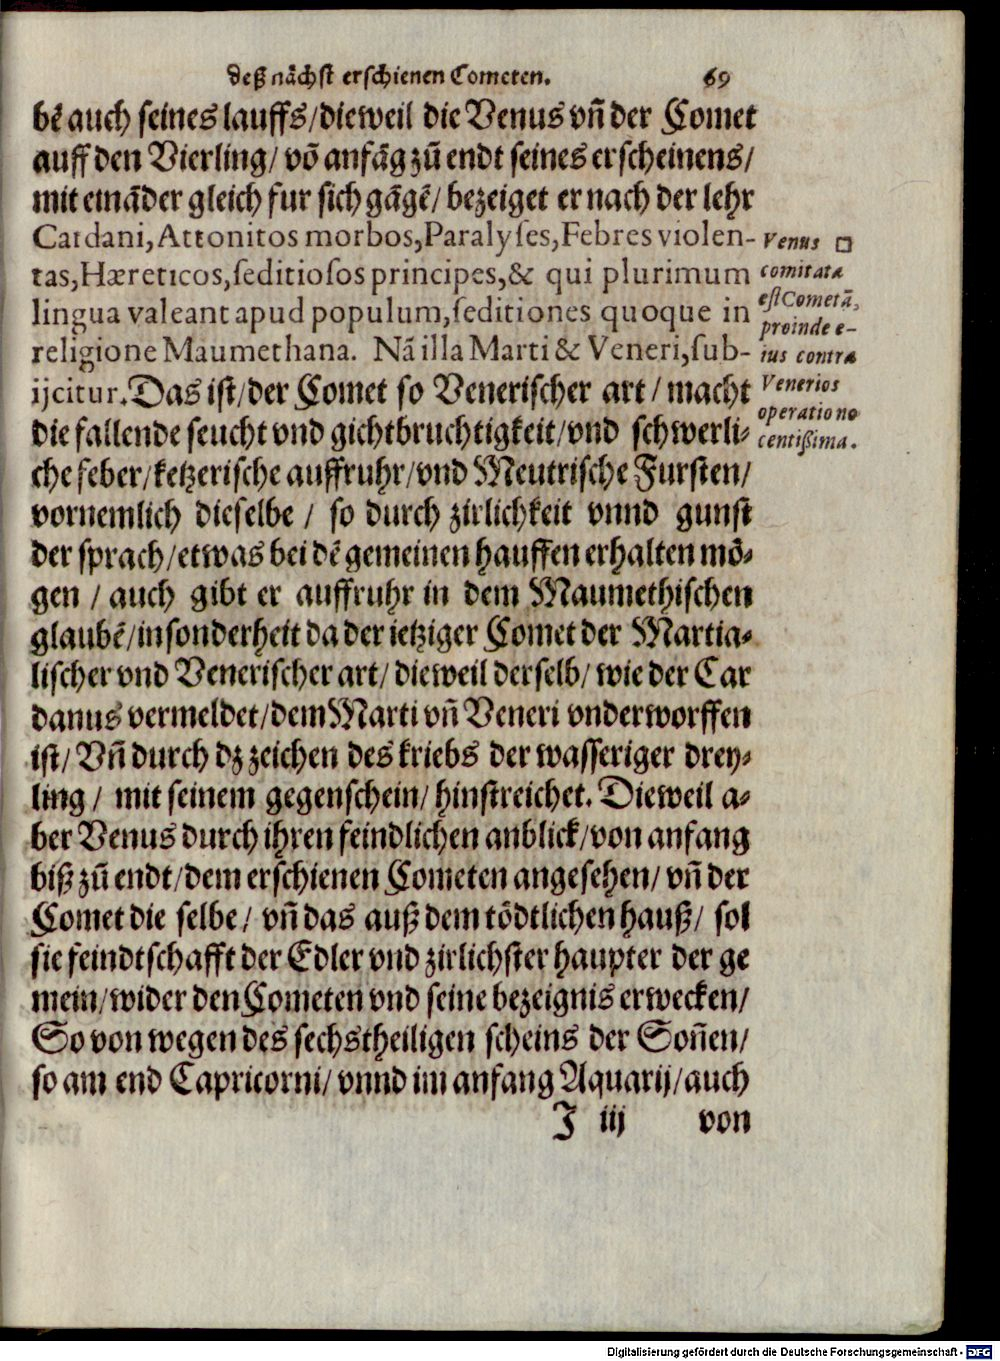 deß nächst erschienen Cometen. 69
bẽ auch seines lauffs/dieweil die Venus vñ der Comet
auff den Vierling/ võ anfãg zũ endt seines erscheinens/
mit einãder gleich fur sich gãgẽ/ bezeiget er nach der lehr
Cardani, Attonitos morbos, Paralyses, Febres violen-
tas, Hæreticos, seditiosos principes, & qui plurimum
lingua valeant apud populum, seditiones quoque in
religione Maumethana. Nã illa Marti & Veneri, sub-
ijcitur. Das ist/der Comet so Venerischer art / macht
die fallende seucht vnd gichtbruchtigkeit/vnd schwerli-
che feber/ketzerische auffruhr/vnd Meutrische Fursten/
vornemlich dieselbe / so durch zirlichkeit vnnd gunst
der sprach/etwas bei dẽ gemeinen hauffen erhalten mö-
gen / auch gibt er auffruhr in dem Maumethischen
glaubẽ/insonderheit da der ietziger Comet der Martia-
lischer vnd Venerischer art/ dieweil derselb/ wie der Car
danus vermeldet/dem Marti vñ Veneri vnderworffen
ist/ Vñ durch dz zeichen des kriebs der wasseriger drey-
ling / mit seinem gegenschein/ hinstreichet. Dieweil a-
ber Venus durch ihren feindlichen anblick/von anfang
biß zũ endt/dem erschienen Cometen angesehen/ vñ der
Comet die selbe/ vñ das auß dem tödtlichen hauß/ sol
sie feindtschafft der Edler vnd zirlichster haupter der ge
mein/wider den Cometen vnd seine bezeignis erwecken/
So von wegen des sechstheiligen scheins der Soñen/
so am end Capricorni/ vnnd im anfang Aquarij/auch
J iij von
Venus □
comitata
est Cometã,
proinde e-
ius contra
Venerios
operatio no
centißima.
Digitalisierung gefördert durch die Deutsche Forschungsgemeinschaft - DFG